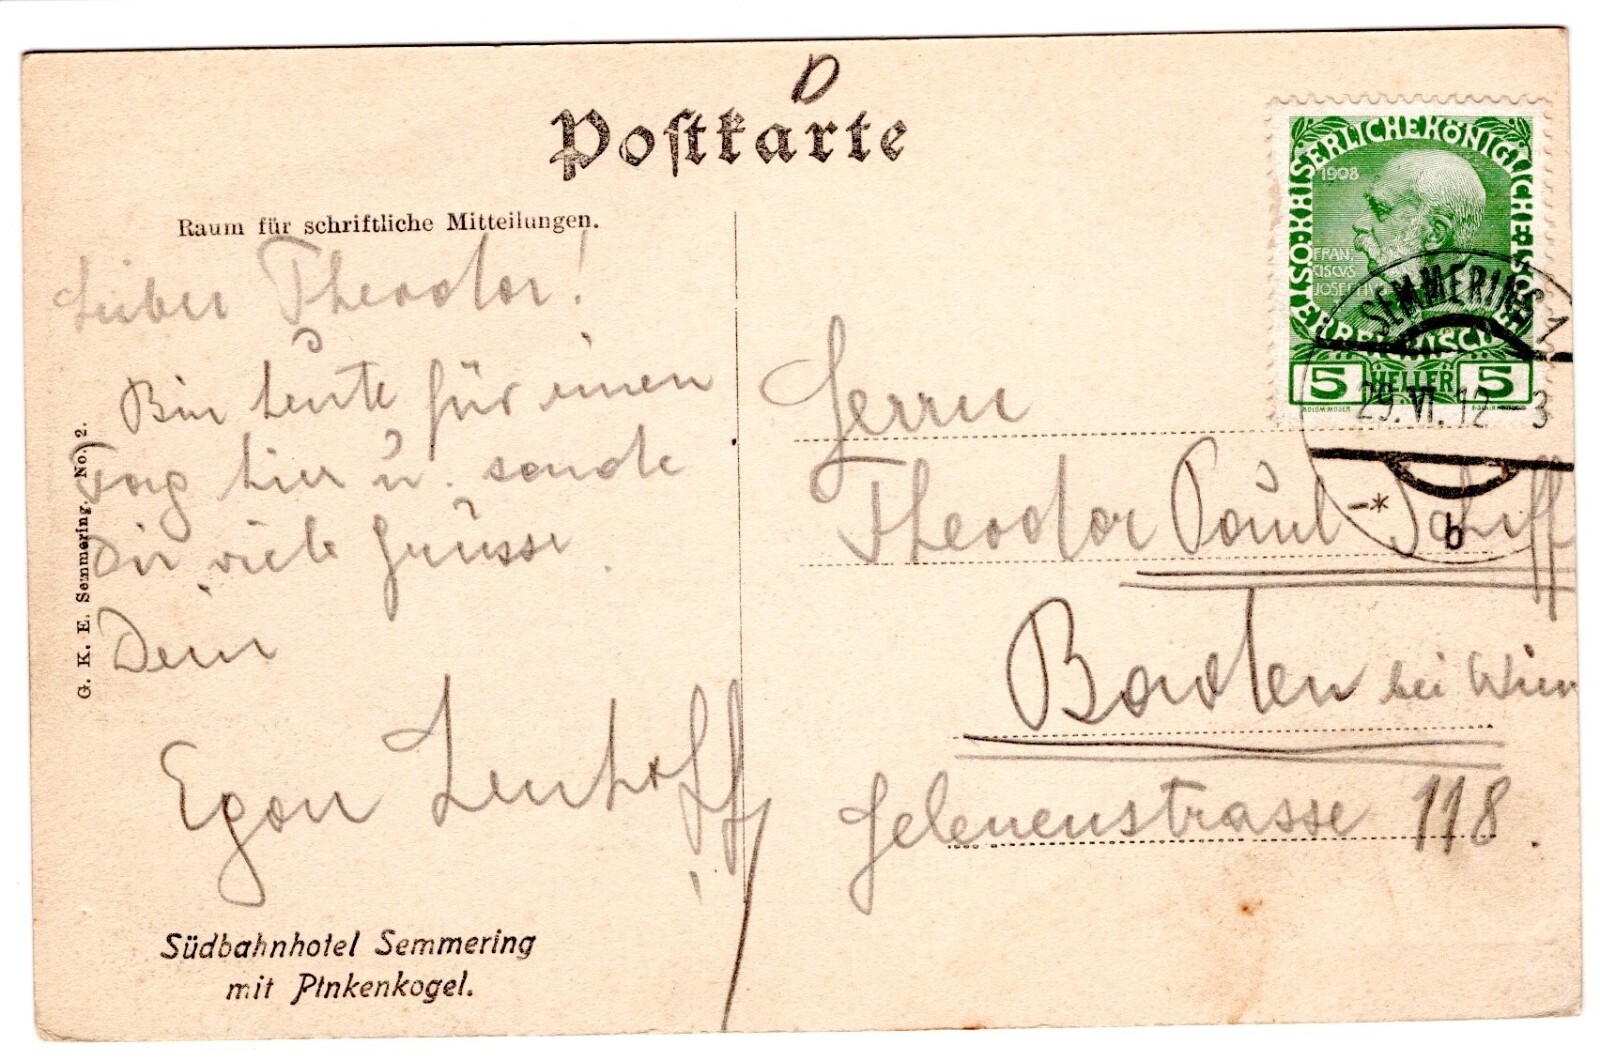 Postkarte
Raum für schriftliche Mitteilungen.
Lieber Theodor!
Bin heute für einen
Tag hier u. sende
Dir viele Grüsse.
Dein
Egon Lenhoff
Südbahnhotel Semmering
mit Pinkenkogel.
G. K. E. Semmering. No. 2.
KAISERLICHE KÖNIGLICHE ÖSTERREICHISCHE
1908
FRAN
CISCVS
JOSEPHVS I
5 HELLER 5
KOLOM. MOSER
SEMMERING 1
29. VI. 12 - 3
-*
b
Herrn
Theodor Paul Schiff
Baden bei Wien
Helenenstrasse 118.